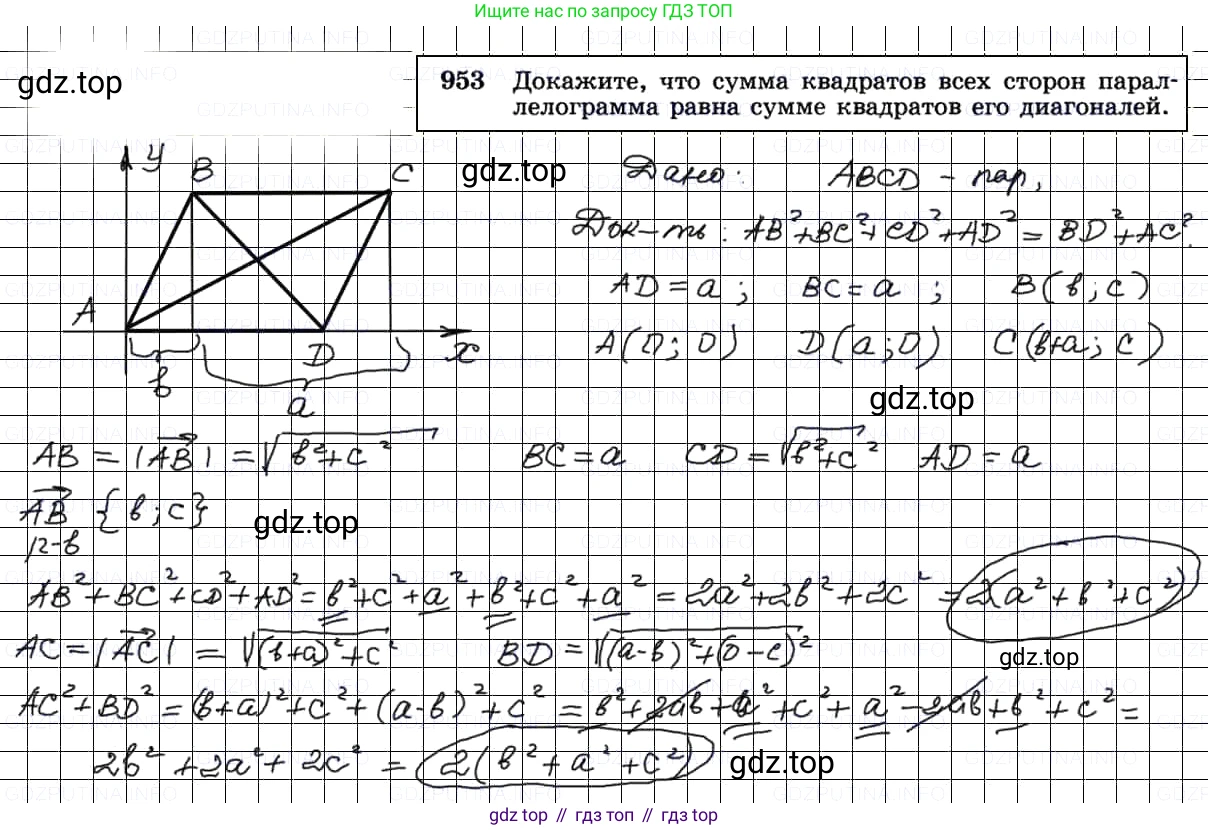 Ищите нас по запросу ГДЗ ТОП
gdz.top
953 Докажите, что сумма квадратов всех сторон парал-
лелограмма равна сумме квадратов его диагоналей.
y B C
gdz.top
Дано: ABCD - пар,
Док-ть: AB²+BC²+CD²+AD² = BD²+AC².
AD = a; BC = a; B(в; c)
A D x
A(0; 0) D(a; 0) C(в+a; c)
в a
gdz.top
AB = |AB| = √в²+c² BC = a CD = √в²+c² AD = a
AB {в; c}
р-в
gdz.top
AB²+BC²+CD²+AD² = в²+c²+a²+в²+c²+a² = 2a²+2в²+2c² = 2(a²+в²+c²)
AC = |AC| = √(в+a)²+c² BD = √(a-в)²+(0-c)²
gdz.top
AC²+BD² = (в+a)²+c²+(a-в)²+c² = в²+2aв+a²+c²+a²-2aв+в²+c² =
2в²+2a²+2c² = 2(в²+a²+c²)
gdz.top
gdz.top // гдз топ // gdz top